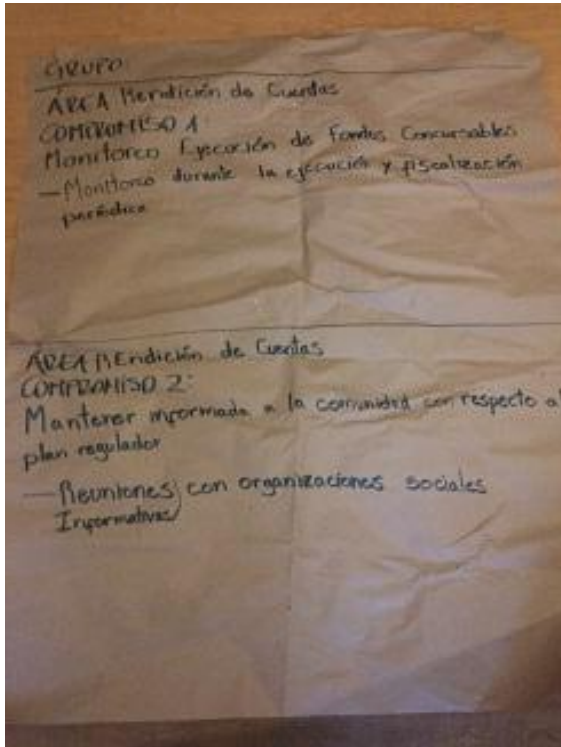 GRUPO:
ÁREA Rendición de Cuentas
COMPROMISO 1
Monitoreo Ejecución de Fondos Concursables
— Monitoreo durante la ejecución y fiscalización
periódica
ÁREA REndición de Cuentas
COMPROMISO 2:
Mantener informada a la comunidad con respecto al
plan regulador
— Reuniones con organizaciones sociales
Informativas